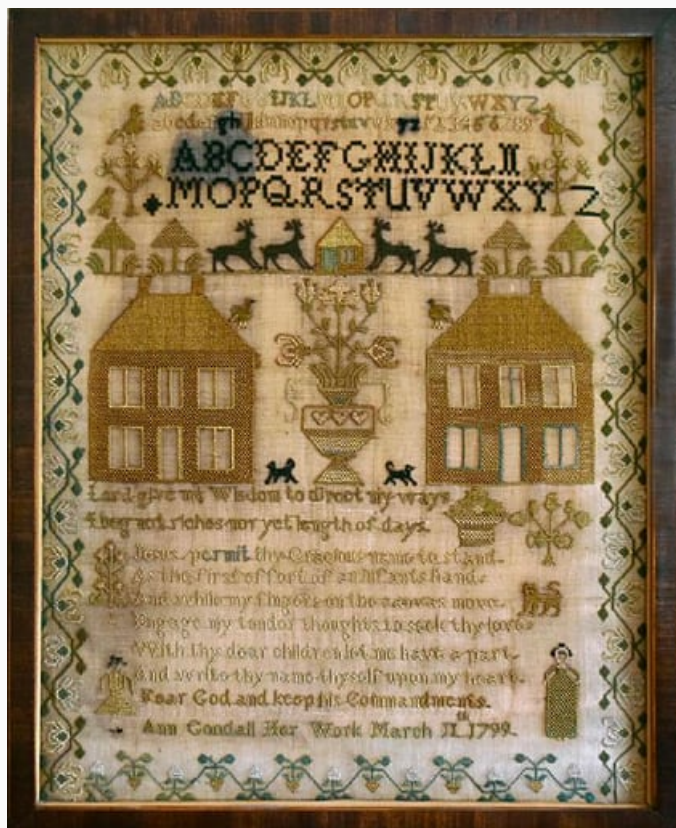 ABCDEFGHIJKLMNOPQRSTUVWXYZ
abcdefghijklmnopqrstuvwxyz 123456789
ABCDEFGHIJKLII
MOPQRSTUVWXYZ
Lord give me Wisdom to direct my ways
I beg not riches nor yet length of days.
Jesus permit thy Gracious name to stand.
As the first effort of an Infants hand.
And while my fingers on the canvas move.
Engage my tender thoughts to seek thy love.
With thy dear children let me have a part.
And write thy name thyself upon my heart.
Fear God and keep his Commandments.
Ann Gondall Her Work March 11th 1799.